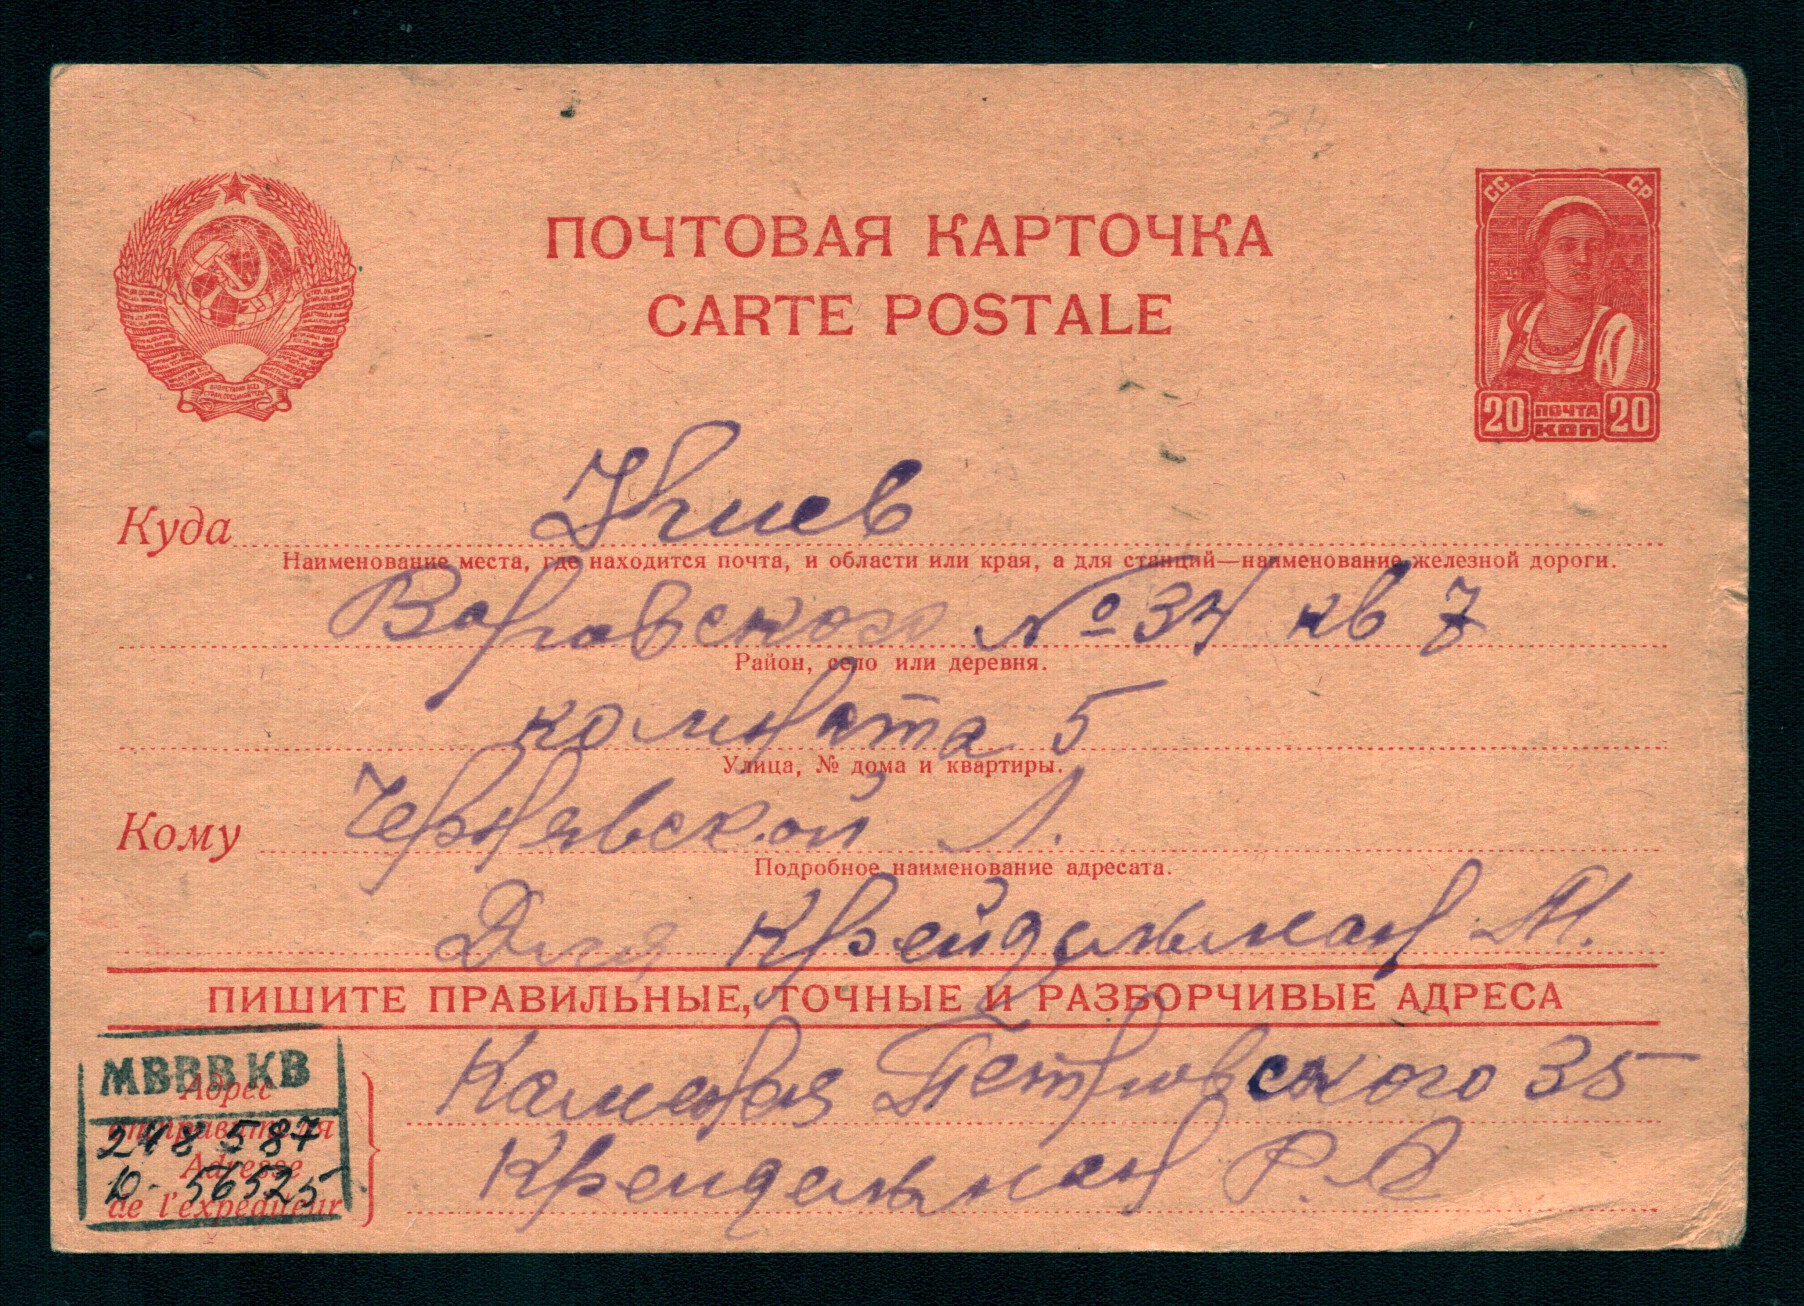 СС СР
ПОЧТОВАЯ КАРТОЧКА
CARTE POSTALE
20 ПОЧТА КОП 20
Куда Киев
Наименование места, где находится почта, и области или края, а для станций—наименование железной дороги.
Воровского № 34 кв 7
Район, село или деревня.
комната 5
Улица, № дома и квартиры.
Кому Чернявской Л.
Подробное наименование адресата.
Для Крейдельман М.
ПИШИТЕ ПРАВИЛЬНЫЕ, ТОЧНЫЕ И РАЗБОРЧИВЫЕ АДРЕСА
МВВВКВ
Адрес отправителя
Adresse de l'expéditeur
248 587
56525
Каменая Петровского 35
Крейдельман Р.